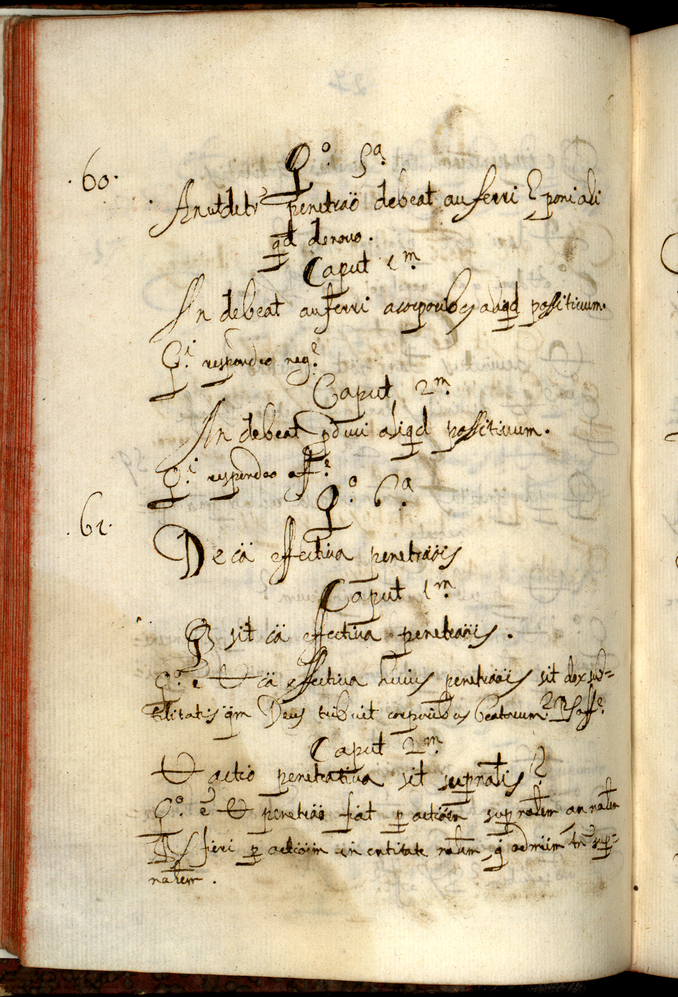 Q.º 5.ª
.60.
An ut detr penetraõ debeat auferri & poni ali
qd denovo.
Caput 1.m
An debeat auferri a corporibus aliqd possitiuum.
respondeo neg.e
Caput 2.m
An debeat pduci aliqd possitiuum.
respondeo aff.e
Q.º 6.ª
.61.
De cä effectiua penetraöis
Caput 1.m
sit cä effectiua penetraöis.
Q.º e U cä effectiua huius penetraöis sit dos sub=
tilitatis qm Deus tribuit corporibus beatorum? Rs aff.e
Caput 2.m
U actio penetratiua sit supralis?
Q.º e U penetraö fiat p actioem supralem an nalem
Rs fieri p actioem in entitate nalem, q ad tn sup=
nalem.